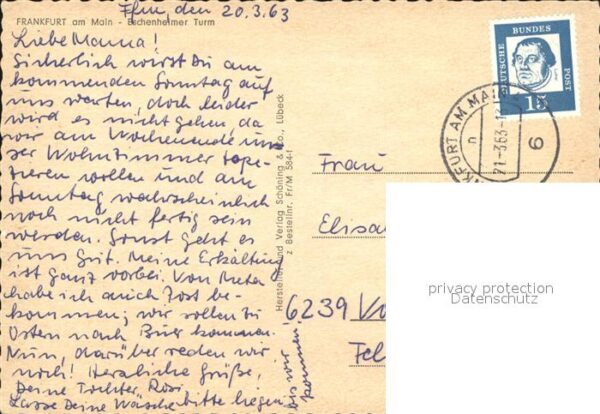 Ffm, den 20.3.63
FRANKFURT am Main - Eschenheimer Turm
Liebe Mama!
Sicherlich wirst Du am
kommenden Sonntag auf
uns warten, doch leider
wird es nicht gehen, da
wir am Wochenende un-
ser Wohnzimmer tape-
zieren wollen und am
Sonntag wahrscheinlich
noch nicht fertig sein
werden. Sonst geht es
uns gut. Meine Erkältung
ist ganz vorbei. Von
habe ich auch Post be-
kommen; wir sollen zu
Ostern nach kommen.
Nun, darüber reden wir
noch! Herzliche Grüße,
Deine Tochter Rosi
Lasse Deine Wäsche bitte liegen,
bis wir
kommen!
Hersteller und Verlag Schöning & Co., Lübeck
z Bestellnr. Fr/M 584-f
DEUTSCHE BUNDES POST
15
FRANKFURT AM MAIN
21-3.63-1
n
9
Frau
Elisa
6239
privacy protection
Datenschutz